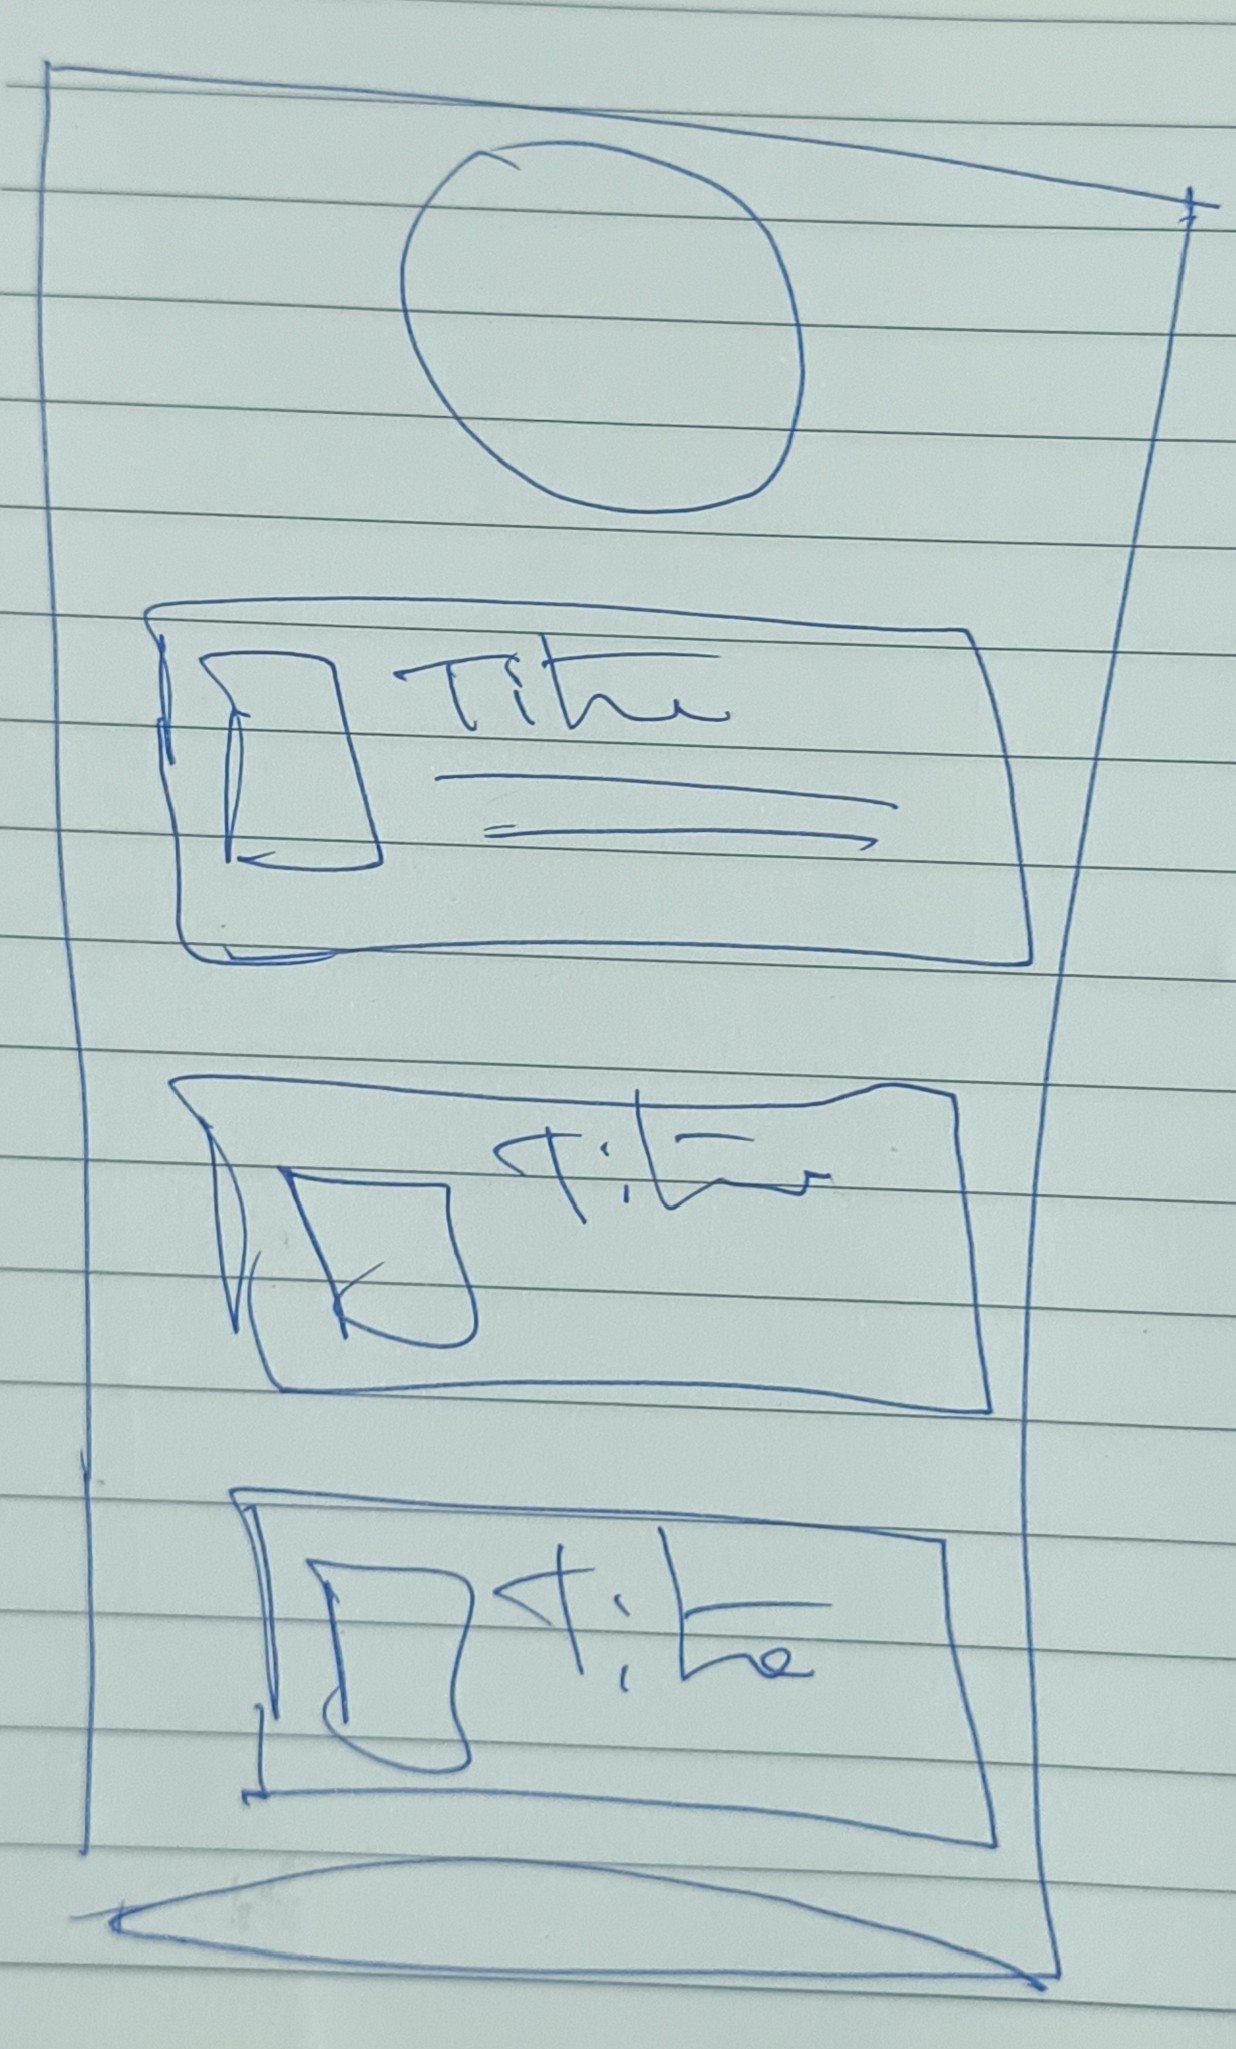 Title
Title
Title